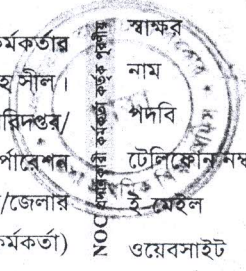 র্মকর্তার
হ সীল।
রিদপ্তর/
র্পোরেশন
/জেলার
র্মকর্তা)
NOC প্রদানকারী কর্মকর্তা কর্তৃক পূরণীয়
স্বাক্ষর
নাম
পদবি
টেলিফোন নম্ব
ই-মেইল
ওয়েবসাইট